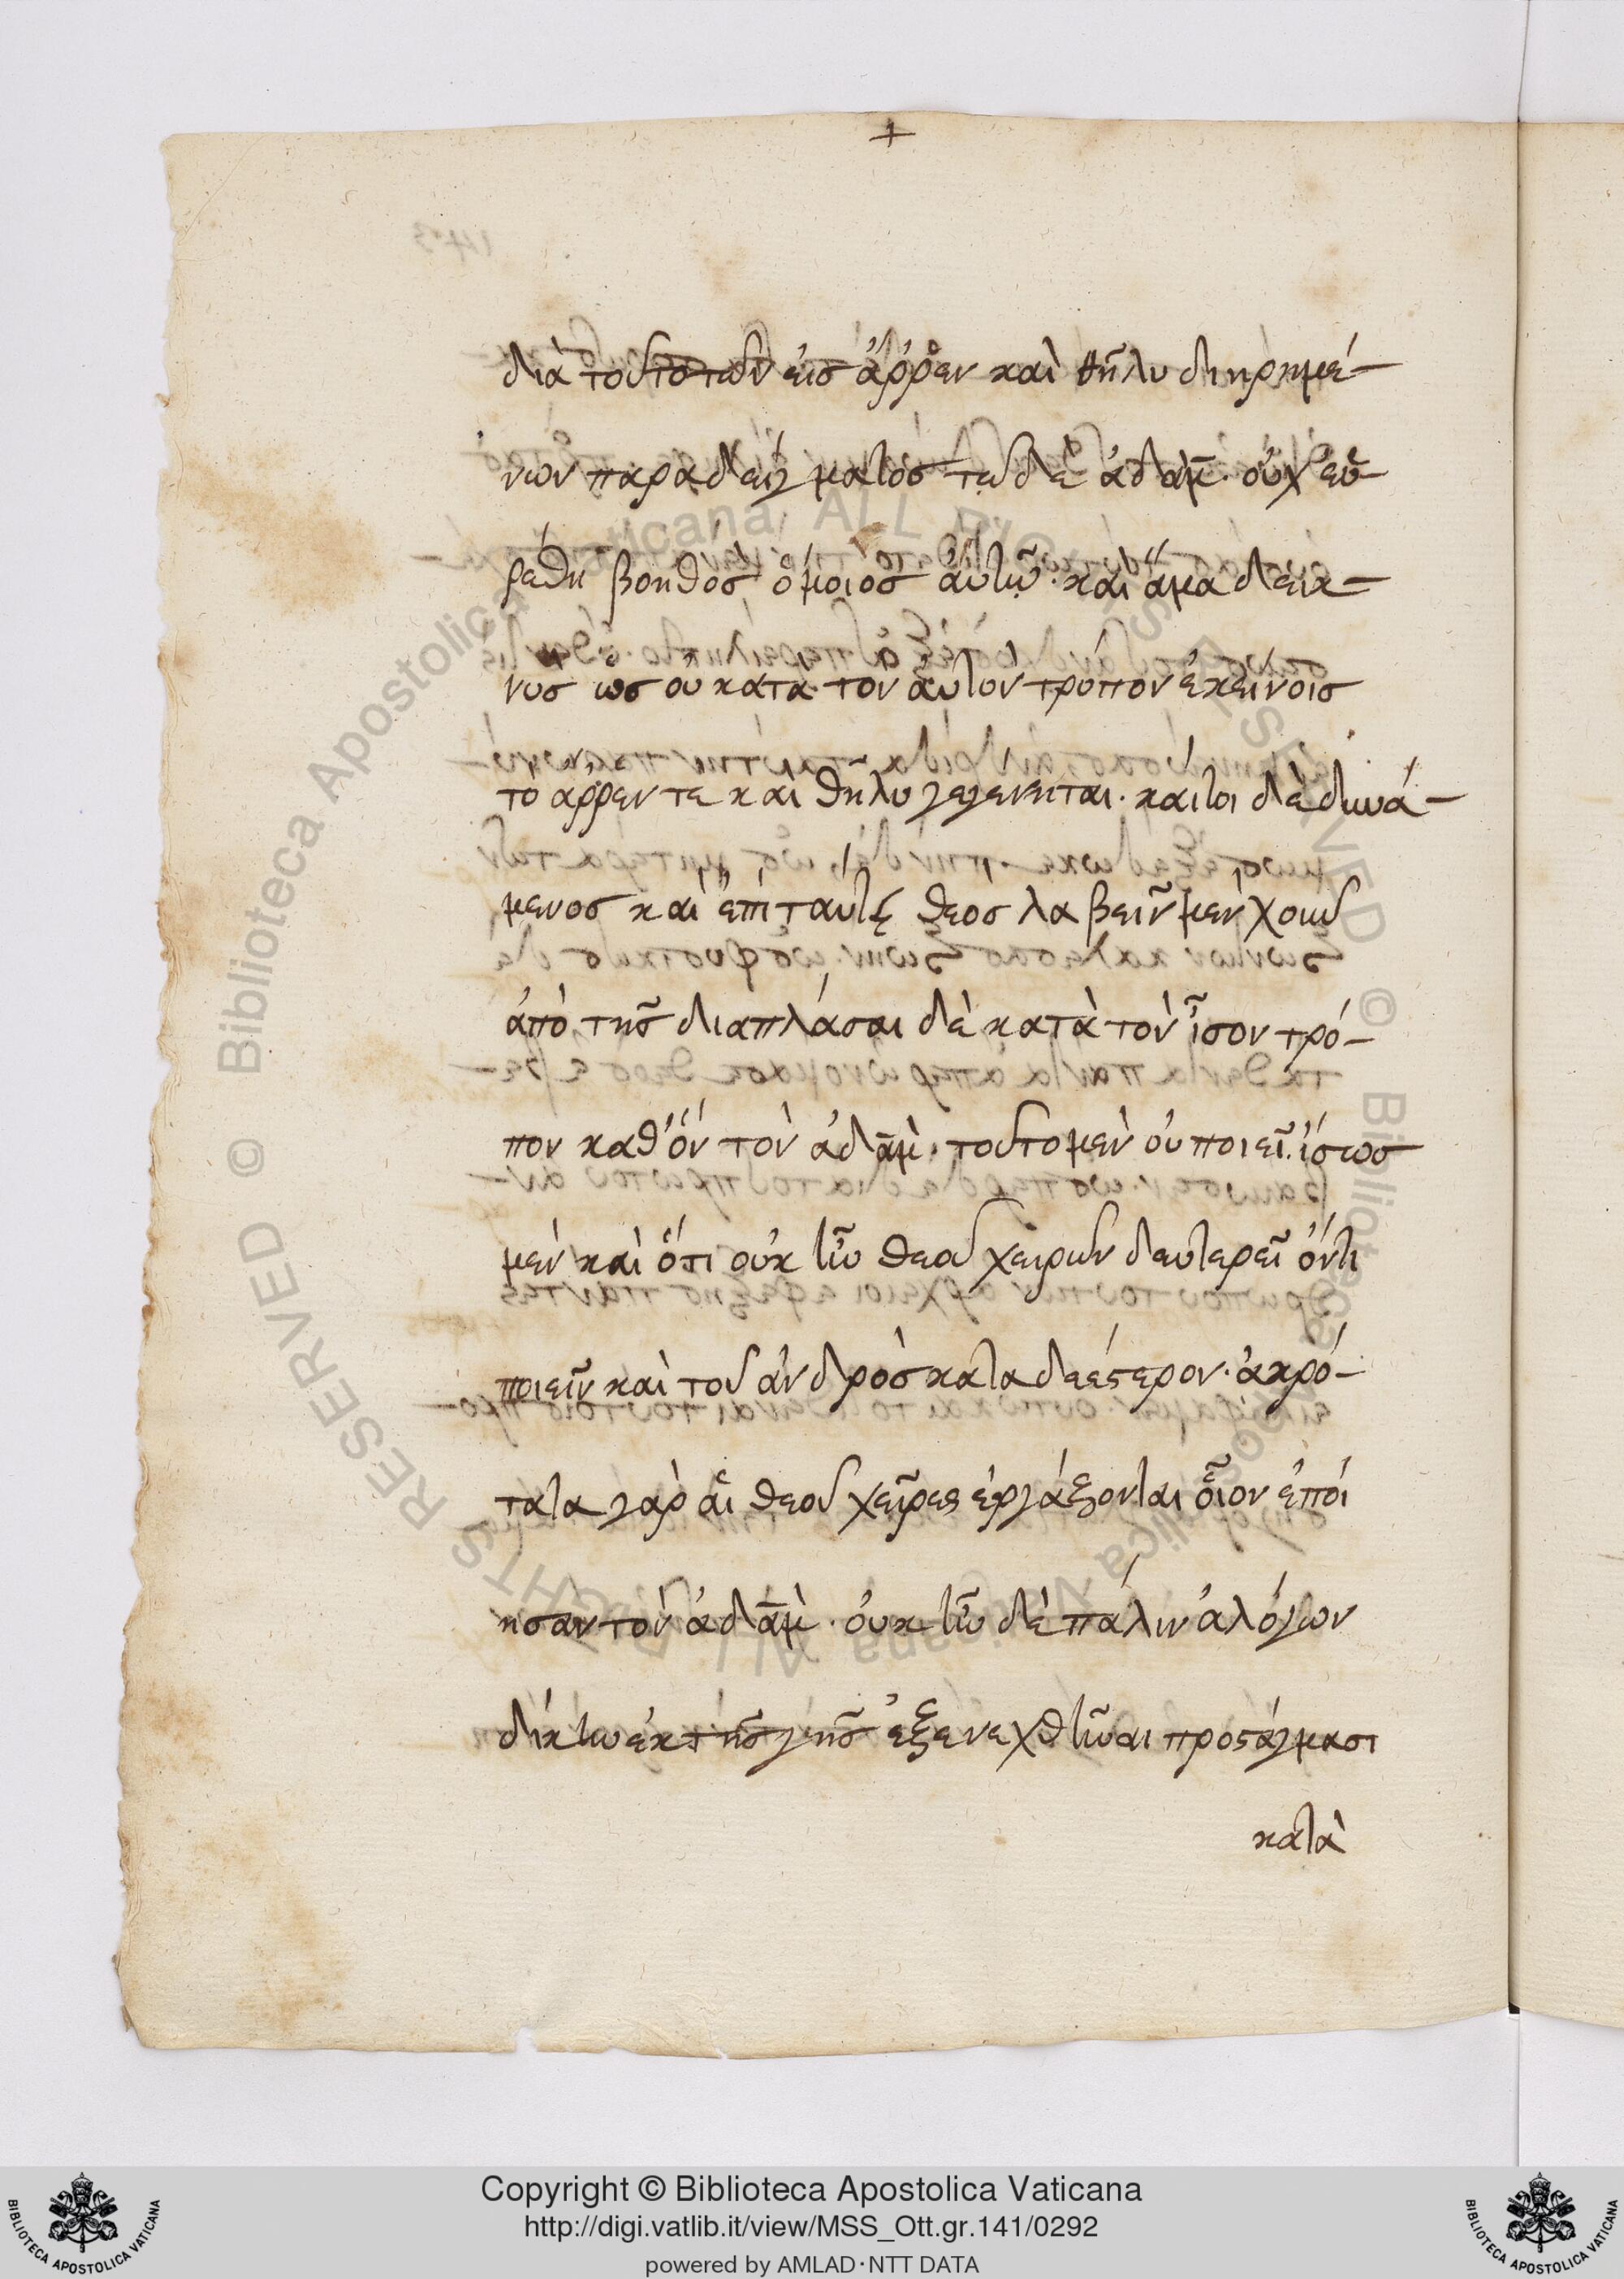 +
διὰ τοῦ τῶν εἰς ἄῤῥεν καὶ θῆλυ διῃρημέ-
νων παραδείγματος τῳ δὲ ἀδὰμ· οὐχ εὑ-
ρέθη βοηθὸς ὅμοιος αὐτῷ· καὶ ἅμα δεικ-
νὺς ὡς οὐ κατὰ τὸν αὐτὸν τρόπον ἐκείνοις
τὸ ἄῤῥεν τε καὶ θῆλυ γεγένηται· καίτοι δὲ δυνά-
μενος καὶ ἐπὶ ταύτης θεὸς λαβεῖν μὲν χοῦν
ἀπὸ τῆς διαπλάσαι δὲ κατὰ τὸν ἶσον τρό-
πον καθ' ὃν τὸν ἀδὰμ· τοῦτο μὲν οὐ ποιεῖ· ἴστως
μὲν καὶ ὅτι οὐκ ἦν θεοῦ χειρῶν δευτερεῖ ὄντι
ποιεῖν καὶ τοῦ ἀνδρὸς καταδεέστερον· ἀκρό-
τατα γὰρ αἱ θεοῦ χεῖρες ἐργάζονται οἷον ἐποί
ησαν τὸν ἀδὰμ· οὐκ ἦν δὲ πάλιν ἀλόγων
δίκην ἐκ τῆς γῆς ἐξενεχθῆναι προστάγμασι
κατὰ
Copyright © Biblioteca Apostolica Vaticana
http://digi.vatlib.it/view/MSS_Ott.gr.141/0292
powered by AMLAD·NTT DATA
BIBLIOTECA APOSTOLICA VATICANA
BIBLIOTECA APOSTOLICA VATICANA